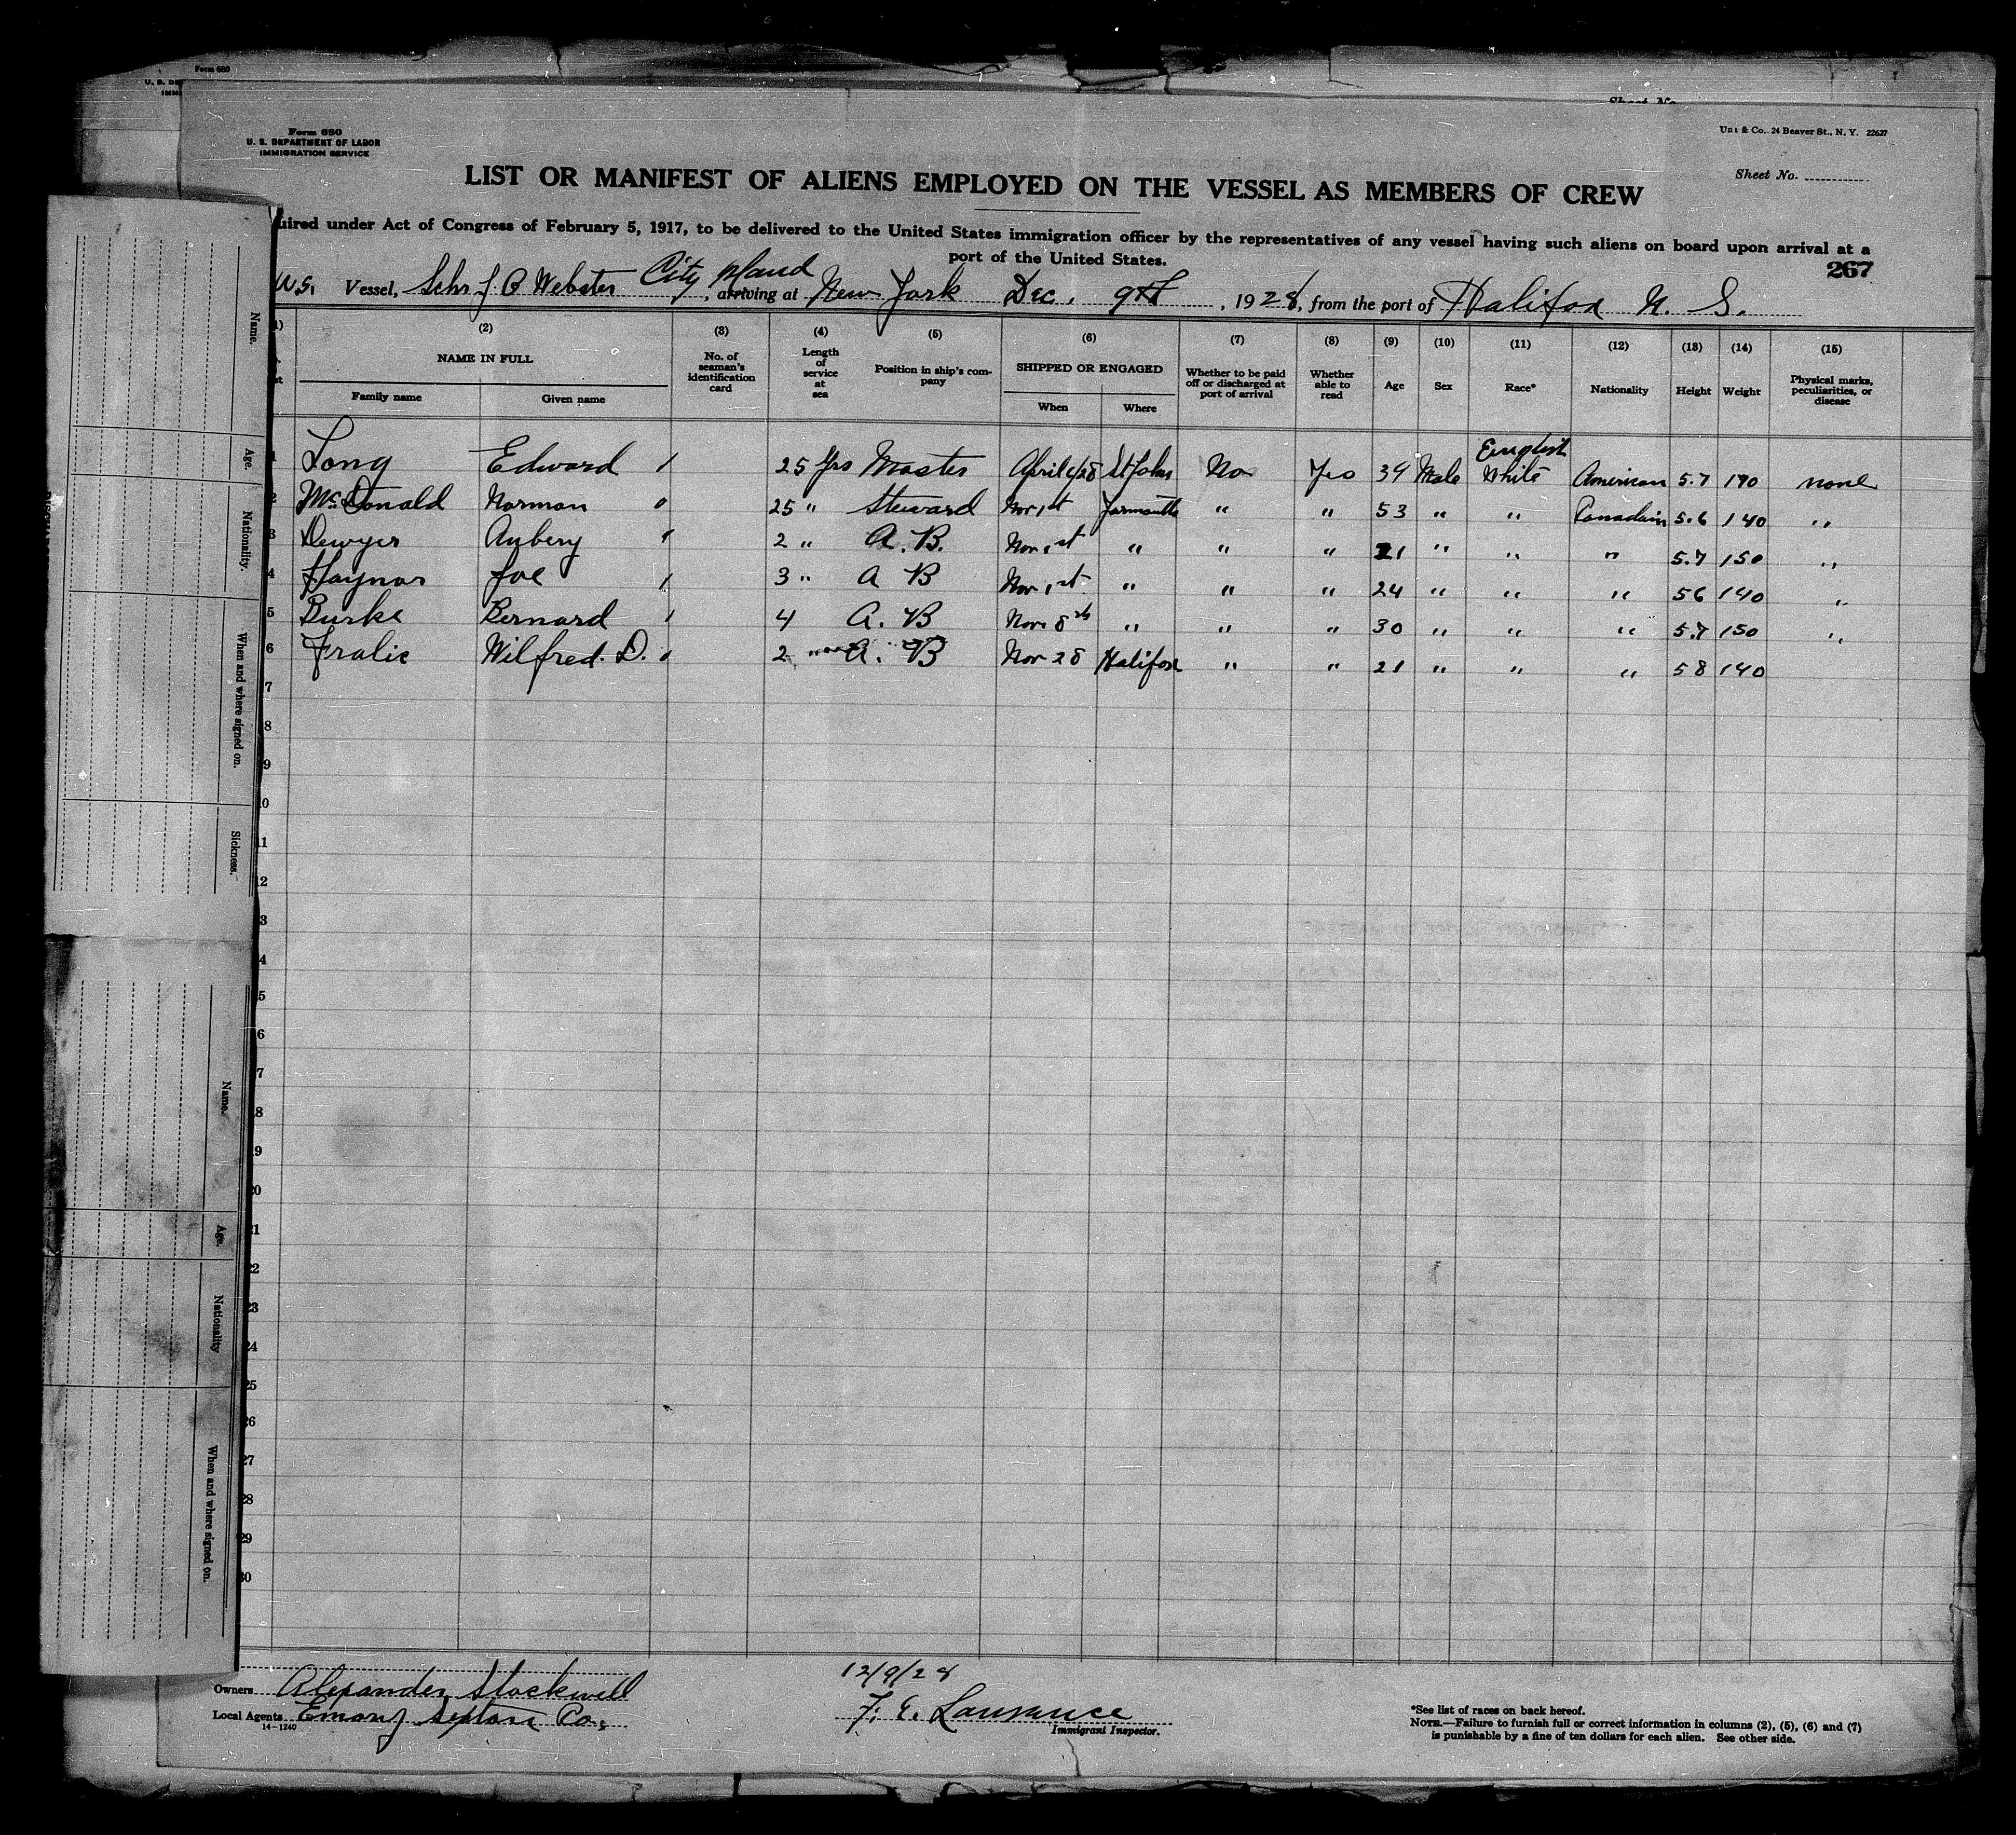 Form 680
U. S. DE
IMMI
Sheet No.
Form 680
U. S. DEPARTMENT OF LABOR
IMMIGRATION SERVICE
& Co., 24 Beaver St., N. Y. 22627
Sheet No.
LIST OR MANIFEST OF ALIENS EMPLOYED ON THE VESSEL AS MEMBERS OF CREW
uired under Act of Congress of February 5, 1917, to be delivered to the United States immigration officer by the representatives of any vessel having such aliens on board upon arrival at a
port of the United States.
267
City Island
Vessel, Schr J B Webster, arriving at New York Dec. 9th, 1928, from the port of Halifax N. S.
(2) (3) (4) (5) (6) (7) (8) (9) (10) (11) (12) (13) (14) (15)
NAME IN FULL
Family name
Given name
No. of seaman's identification card
Length of service at sea
Position in ship's company
SHIPPED OR ENGAGED
When
Where
Whether to be paid off or discharged at port of arrival
Whether able to read
Age
Sex
Race*
Nationality
Height
Weight
Physical marks, peculiarities, or disease
English
1 Long Edward 25 Yrs Master April 28 St John No Yes 39 Male White American 5.7 190 none
2 McDonald Norman 25 " Steward Nov 1st Yarmouth " " 53 " " Canadain 5.6 140 "
3 Dewyer Aubery 2 " A.B. Nov 1st " " " 21 " " " 5.7 150 "
4 Haynor Joe 3 " A B Nov 1st " " " 24 " " " 5 6 140 "
5 Burke Bernard 4 A. B Nov 8th " " " 30 " " " 5.7 150 "
6 Fralic Wilfred. D. 2 " A. B Nov 28 Halifax " " 21 " " " 5 8 140
7
8
9
10
11
12
3
4
5
6
7
8
9
20
21
22
23
24
25
26
27
28
29
30
Name.
Age.
Nationality.
When and where signed on.
Sickness.
Name.
Age.
Nationality
When and where signed on.
12/9/28
Owners Alexander Stockwell
Local Agents Sexton Co.
14-1240
F. E. Laurance
Immigrant Inspector.
*See list of races on back hereof.
NOTE.—Failure to furnish full or correct information in columns (2), (5), (6) and (7)
is punishable by a fine of ten dollars for each alien. See other side.